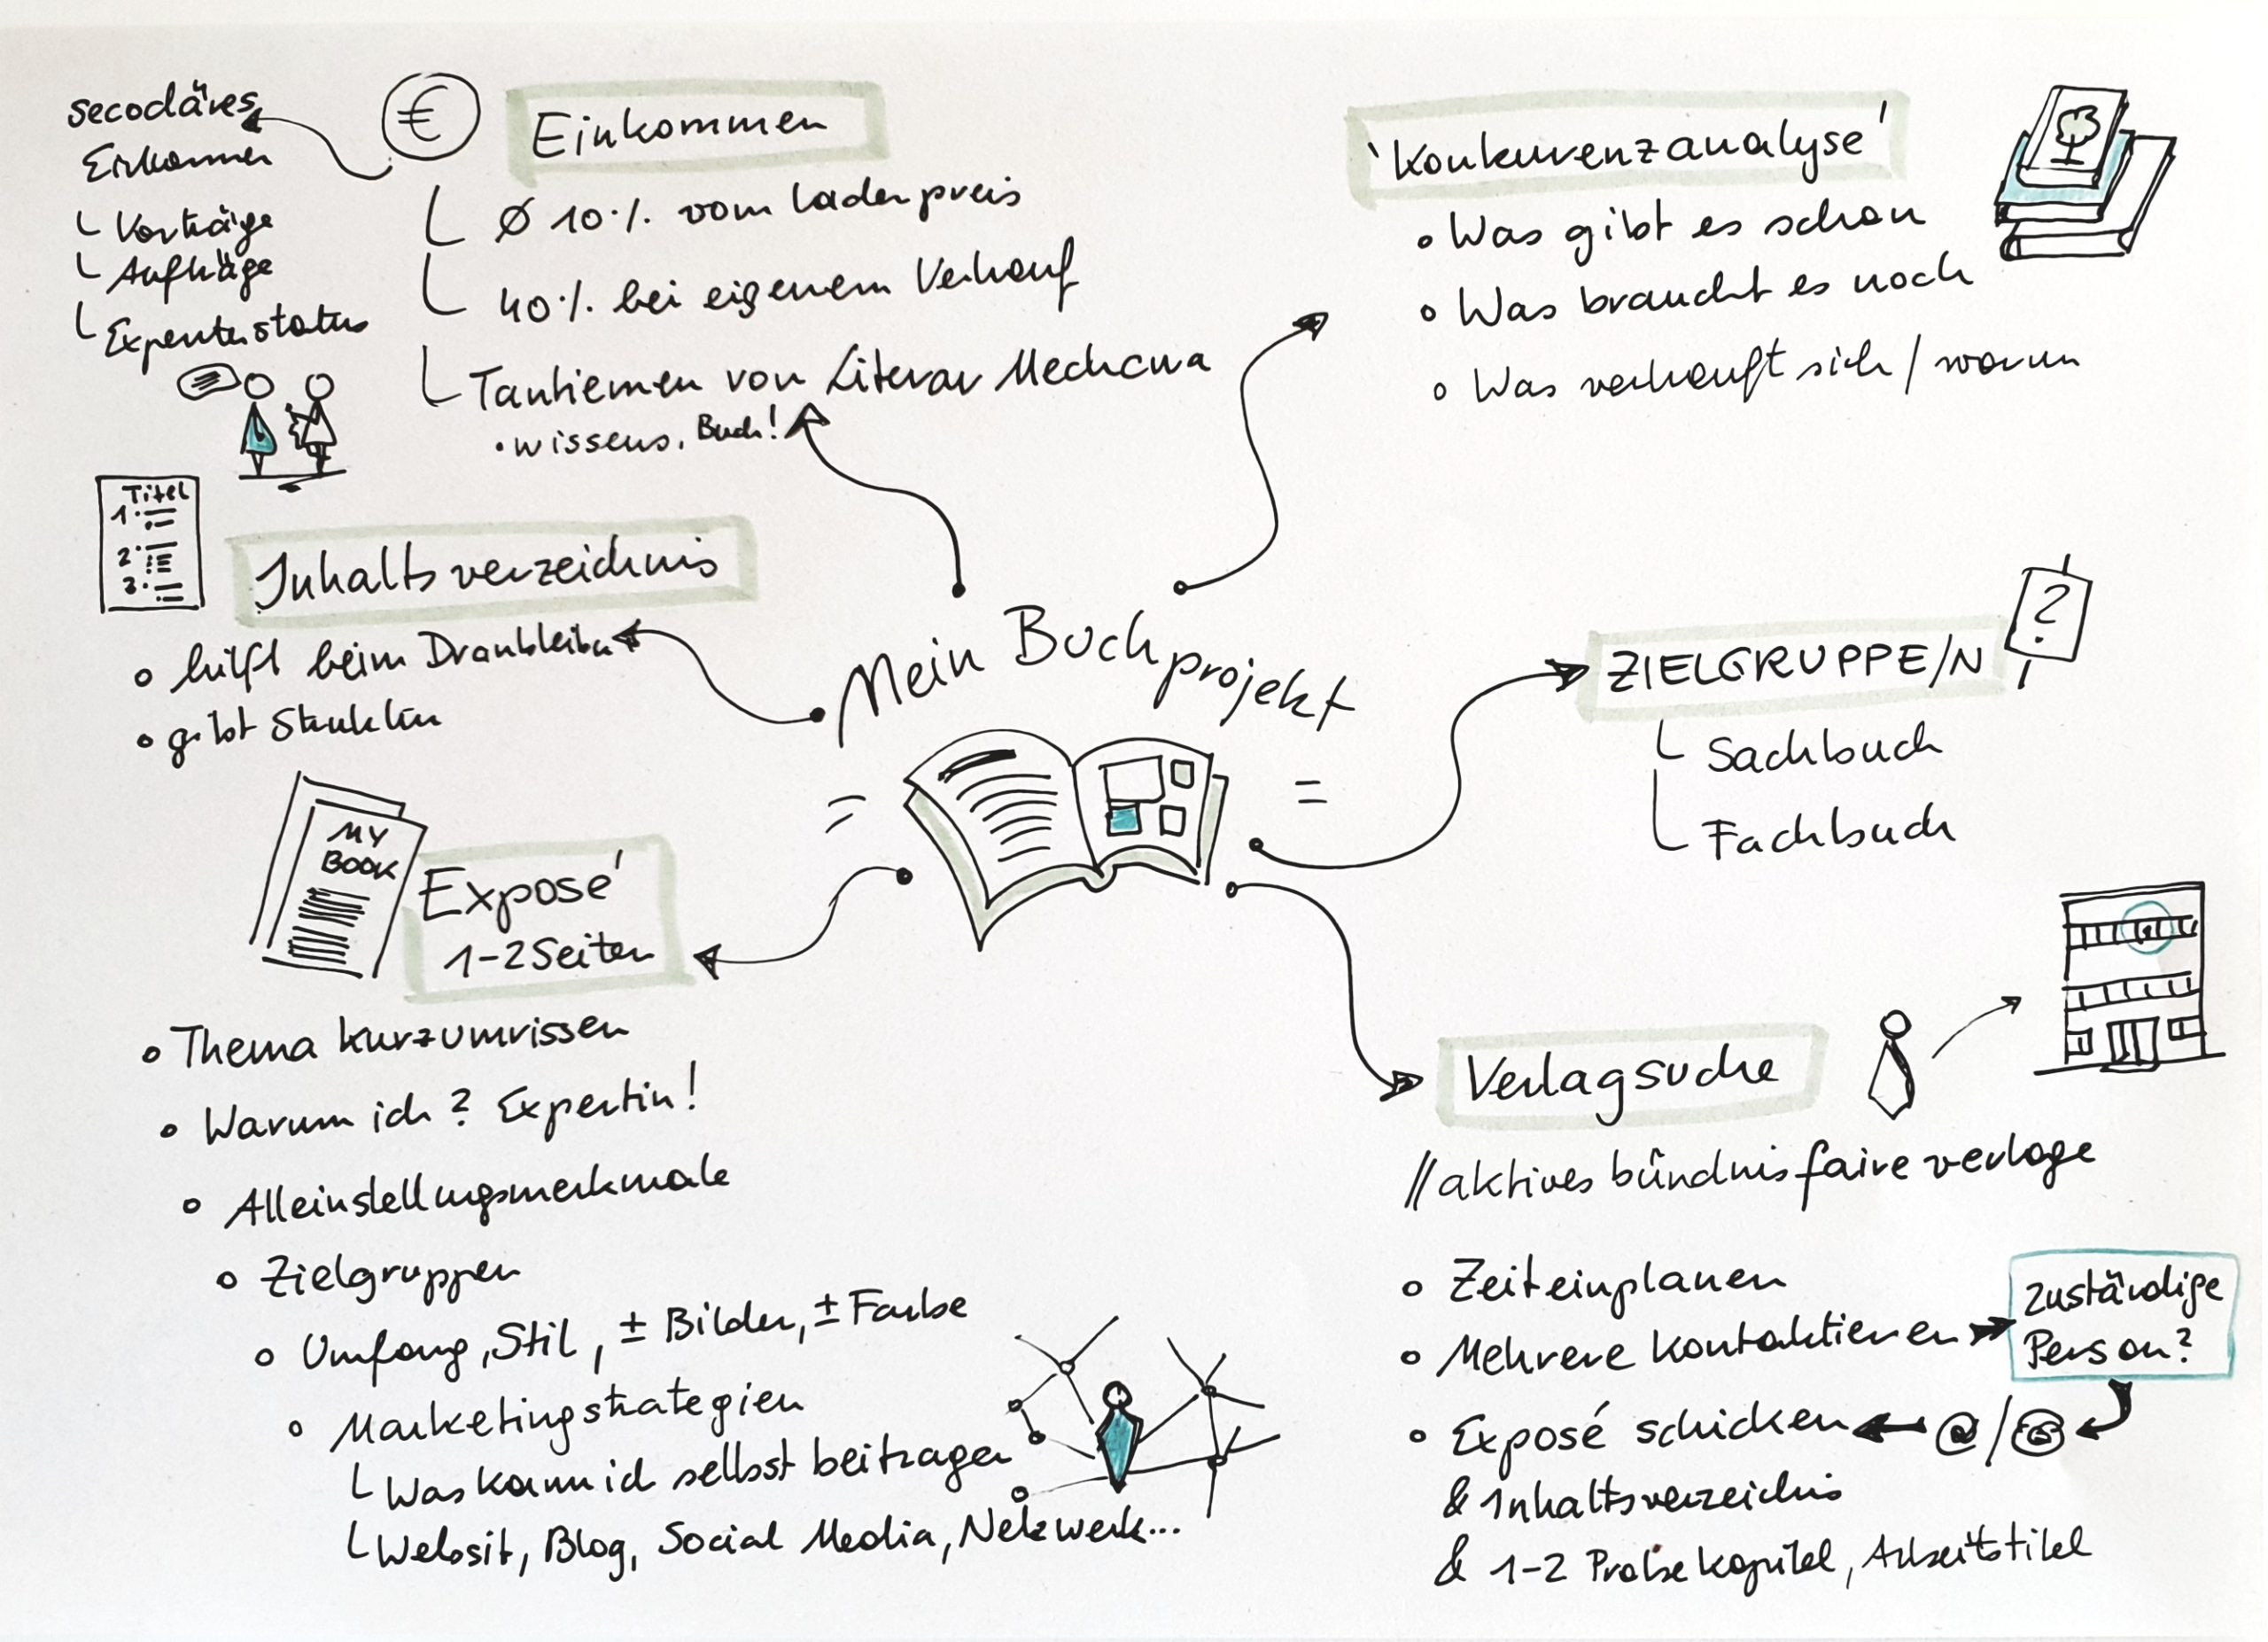 secodäres
Einkommen
└ Vorträge
└ Aufträge
└ Expertenstatus
€
Einkommen
└ Ø 10% vom Ladenpreis
└ 40% bei eigenem Verkauf
└ Tantiemen von Literar Mechana
• wissens. Buch!
'Konkurenzanalyse'
• Was gibt es schon
• Was braucht es noch
• Was verkauft sich / warum
Titel
1.
2.
3.
Inhaltsverzeichnis
• hilft beim Dranbleiben
• gibt Struktur
Mein Buchprojekt
ZIELGRUPPE/N
?
└ Sachbuch
└ Fachbuch
MY
BOOK
Exposé
1-2 Seiten
• Thema kurz umrissen
• Warum ich? Expertin!
• Alleinstellungsmerkmale
• Zielgruppen
• Umfang, Stil, ± Bilder, ± Farbe
• Marketingstrategien
└ Was kann ich selbst beitragen
└ Websit, Blog, Social Media, Netzwerk...
Verlagsuche
// aktives bündnis faire verlage
• Zeit einplanen
• Mehrere kontaktieren
zuständige
Person?
• Exposé schicken
@ /
& Inhaltsverzeichnis
& 1-2 Probekapitel, Arbeitstitel